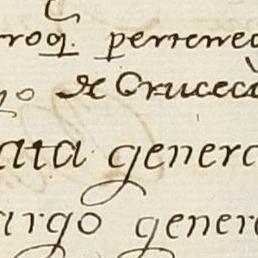 roq. pertenec
go de Cruceca
ata genera
argo genera